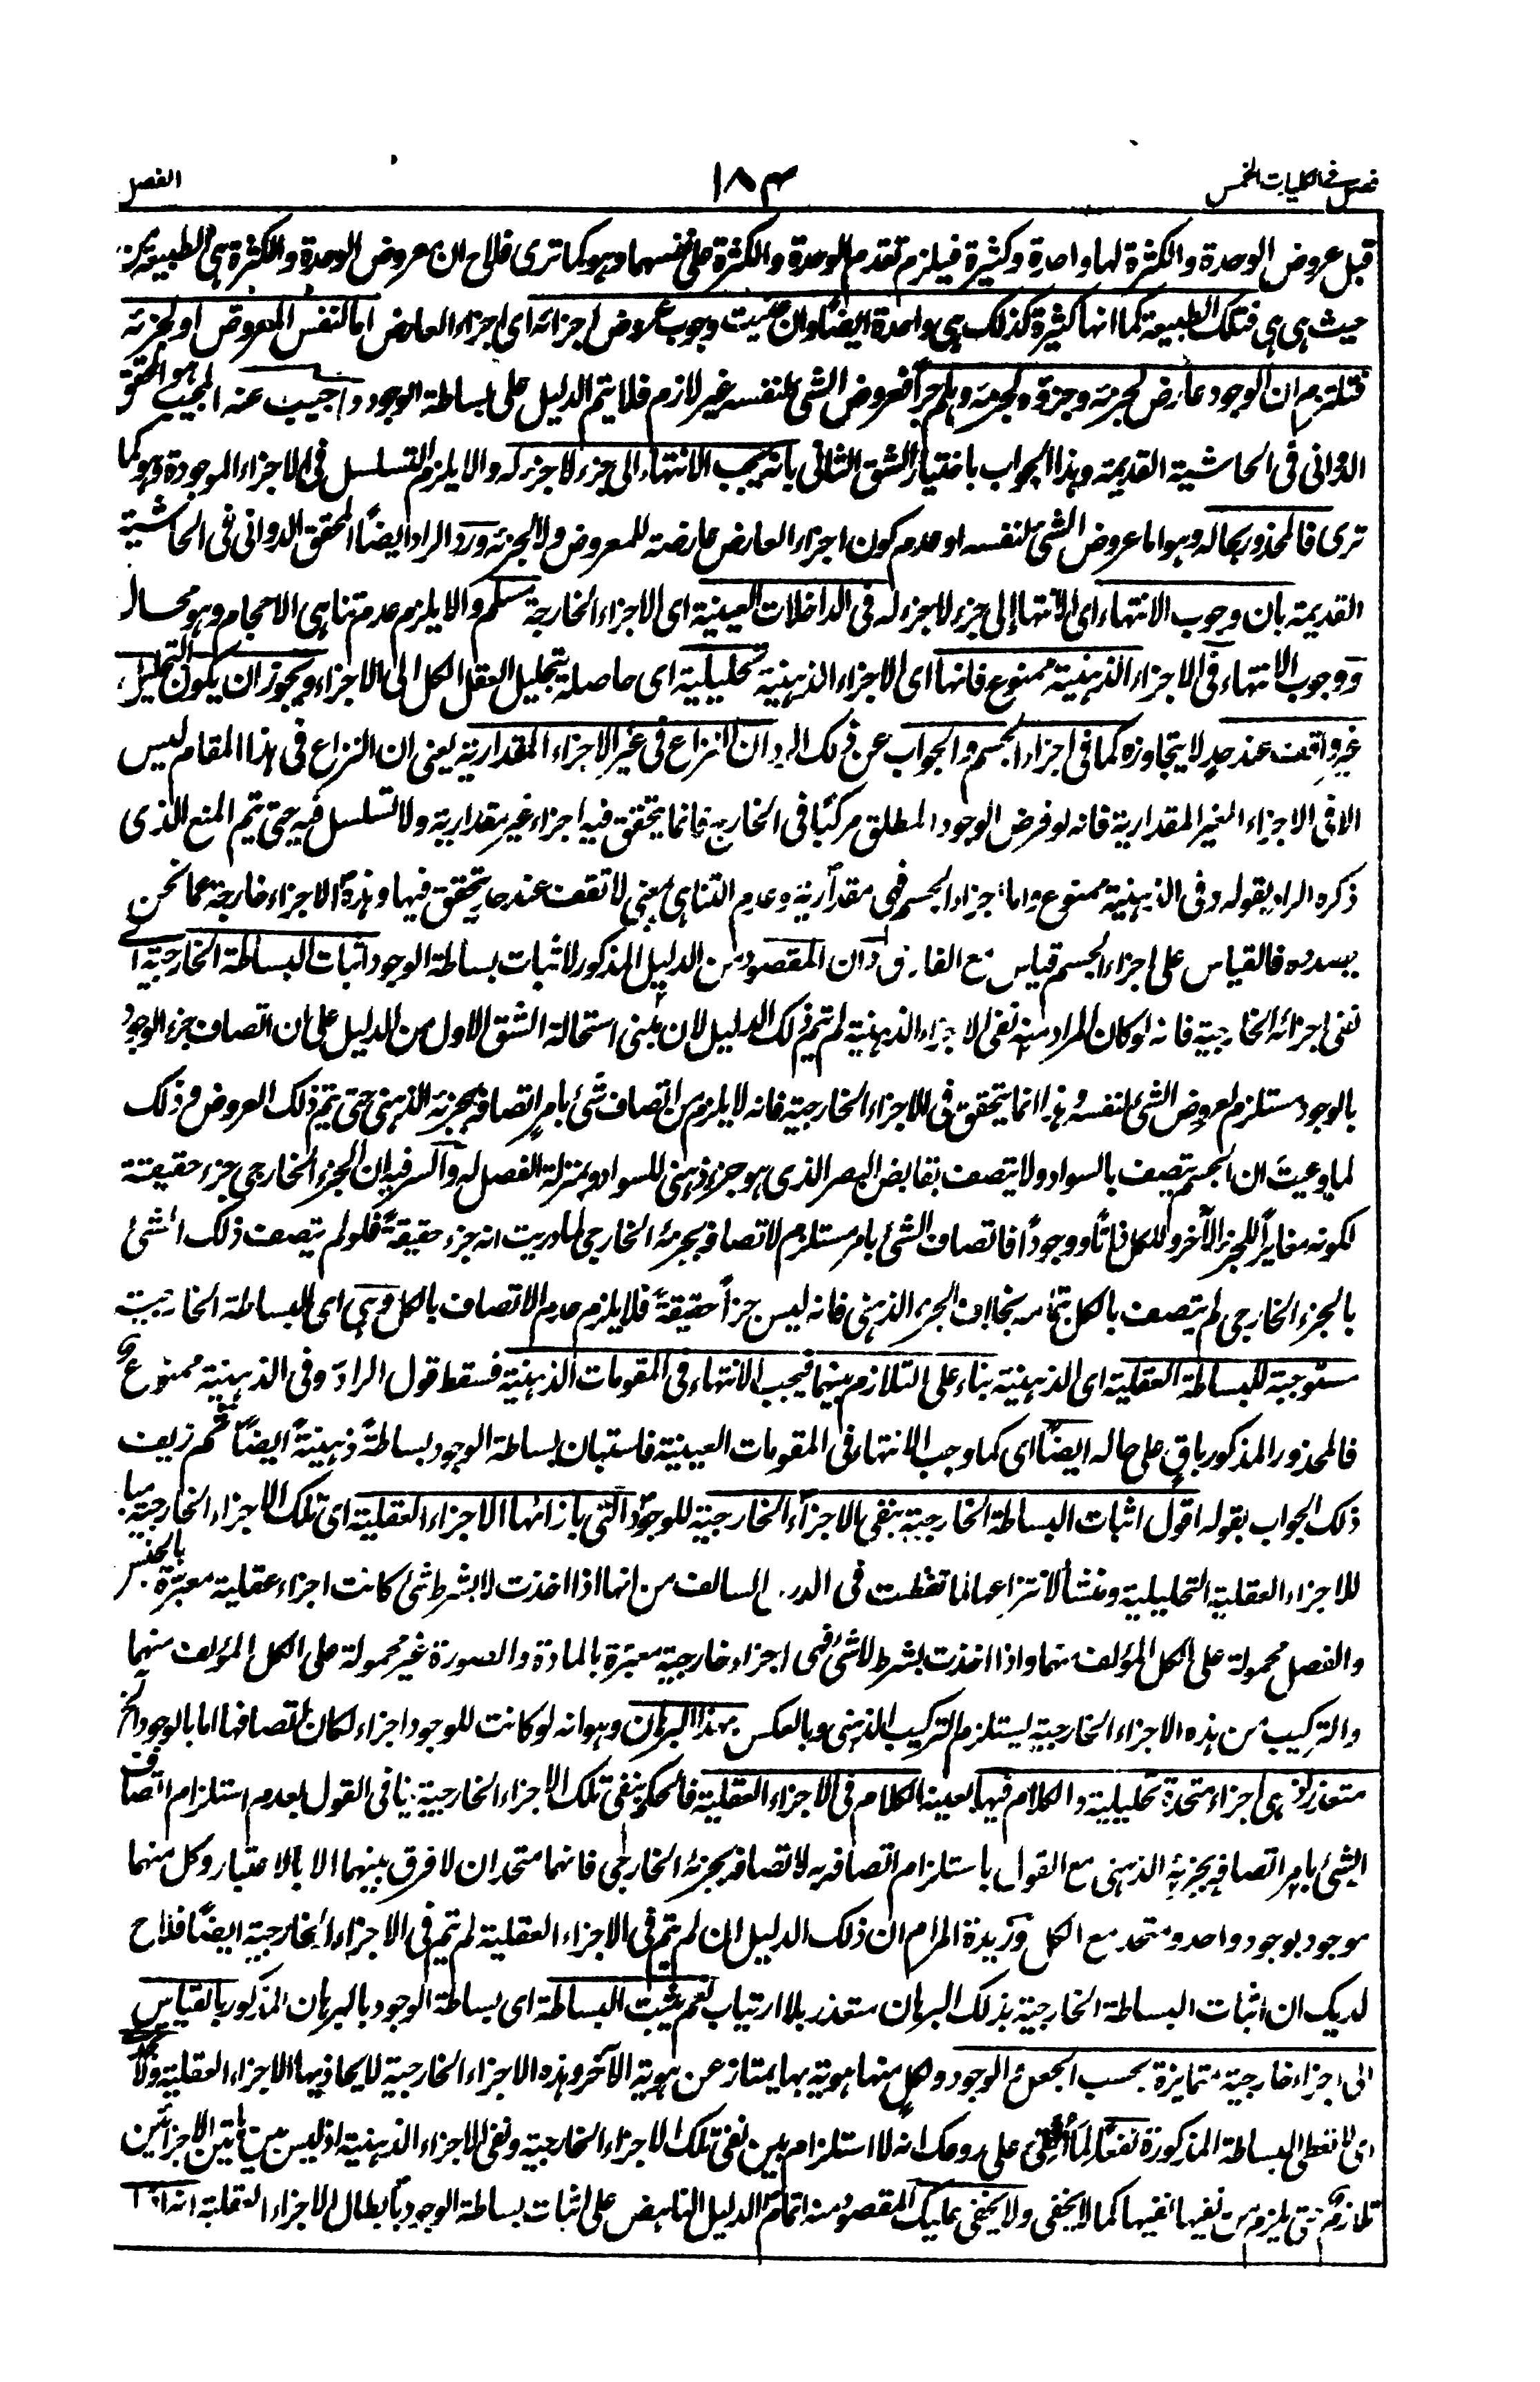 فصل في الكليات الخمس
١٨٣
الفصل
قبل عروض الوحدة والكثرة لها واحدة وكثيرة فيلزم تقدم الوحدة والكثرة على نفسهما وهو كما ترى فلاح ان معروض الوحدة والكثرة هي الطبيعة من
حيث هي هي فتلك الطبيعة كما انها كثيرة كذلك هي واحدة ايضًا وان وجوب عروض اجزائه اى اجزاء العارض اما لنفس المعروض او لجزئه
فنلتزم ان الوجود عارض لجزئه وجزؤه لجزئه وهلم جراً فعروض الشئ لنفسه غير لازم فلا يتم الدليل على بساطة الوجود واجيب عنه المجيب هو المحقق
الدوانى فى الحاشية القديمة وهذا الجواب باختيار الشق الثانى بانه يجب الانتهاء الى جزء لا جزء له والا يلزم التسلسل فى الاجزاء الموجودة وهو كما
ترى فالمحذور بحاله وهو اما عروض الشئ لنفسه او عدم كون اجزاء العارض عارضة للمعروض ولا لجزئه ورد الراد ايضًا المحقق الدوانى فى الحاشية
القديمة بان وجوب الانتهاء اى الانتهاء الى جزء لا جزء له فى الداخلات العينية اى الاجزاء الخارجة مسلم والا يلزم عدم تناهى الاحجام وهو محال
ووجوب الانتهاء فى الاجزاء الذهنية ممنوع فانها اى الاجزاء الذهنية تحليلية اى حاصلة بتحليل العقل الكل الى الاجزاء ويجوز ان يكون التحليل
غير واقعت عند حدٍ لا يتجاوزه كما فى اجزاء الجسم والجواب عن ذلك الرد ان النزاع فى غير الاجزاء المقدارية يعنى ان النزاع فى هذا المقام ليس
الا فى الاجزاء الغير المقدارية فانه لو فرض الوجود المطلق مركبًا فى الخارج فانما يتحقق فيه اجزاء غير مقدارية ولا تسلسل فيه حتى يتم المنع الذى
ذكره الراد بقوله وفى الذهنية ممنوع واما اجزاء الجسم فهى مقدارية وعدم التناهى بمعنى لا تقف عند حد يتحقق فيها وهذه الاجزاء خارجة عما نحن
بصدده فالقياس على اجزاء الجسم قياس مع الفارق وان المقصود من الدليل المذكور لاثبات بساطة الوجود اثبات البساطة الخارجية اى
نفى اجزائه الخارجية فانه لو كان المراد منه نفى الاجزاء الذهنية لم يتم ذلك الدليل لان مبنى استحالة الشق الاول من الدليل على ان اتصاف جزء الوجود
بالوجود مستلزم لعروض الشئ لنفسه وهذا انما يتحقق فى الاجزاء الخارجية فانه لا يلزم من اتصاف شئ بامرٍ اتصافه بجزئه الذهنى حتى يتم ذلك العروض وذلك
لما وعيت ان الجسم يتصف بالسواد ولا يتصف بقابض البصر الذى هو جزء ذهنى للسواد وبمنزلة الفصل له والسر فيه ان الجزء الخارجى جزء حقيقة
لكونه مغايراً للجزء الآخر وللكل ذاتًا ووجوداً فاتصاف الشئ بامر مستلزم لاتصافه بجزئه الخارجى لما دريت انه جزء حقيقةً فلو لم يتصف ذلك الشئ
بالجزء الخارجى لم يتصف بالكل بتمامه بخلاف الجزء الذهنى فانه ليس جزأً حقيقةً فلا يلزم عدم الاتصاف بالكل وهى اى البساطة الخارجية
مستوجبة للبساطة العقلية اى الذهنية بناء على التلازم بينهما فيجب الانتهاء فى المقومات الذهنية فسقط قول الراد وفى الذهنية ممنوع و
فالمحذور المذكور باقٍ على حاله ايضًا اى كما وجب الانتهاء فى المقومات العينية فاستبان بساطة الوجود بساطةً ذهنيةً ايضًا ثم زيف
ذلك الجواب بقوله اقول اثبات البساطة الخارجية بنفى الاجزاء الخارجية للوجود التى بازائها الاجزاء العقلية اى تلك الاجزاء الخارجية
للاجزاء العقلية التحليلية ومنشأ لانتزاعها لما تفطنت فى الدرج السالف من انها اذا اخذت لا بشرط شئ كانت اجزاء عقلية معبرة بالجنس
والفصل محمولة على الكل المؤلف منهما واذا اخذت بشرط لا شئ فهى اجزاء خارجية معبرة بالمادة والصورة غير محمولة على الكل المؤلف منهما
والتركيب من هذه الاجزاء الخارجية يستلزم التركيب الذهنى وبالعكس بهذا البرهان وهو انه لو كانت للوجود اجزاء لكان اتصافها اما بالوجود الخ
متعذر اذ هى اجزاء متحدة تحليلية والكلام فيها بعينه الكلام فى الاجزاء العقلية فالحكم بنفى تلك الاجزاء الخارجية ينافى القول بعدم استلزام اتصاف
الشئ بامرٍ اتصافه بجزئه الذهنى مع القول باستلزام اتصافه به لاتصافه بجزئه الخارجى فانهما متحدان لا فرق بينهما الا بالاعتبار وكل منهما
موجود بوجود واحد ومتحد مع الكل وزبدة المرام ان ذلك الدليل ان لم يتم فى الاجزاء العقلية لم يتم فى الاجزاء الخارجية ايضًا فلاح
لديك ان اثبات البساطة الخارجية بذلك البرهان متعذر بلا ارتياب نعم يثبت البساطة اى بساطة الوجود بالبرهان المذكور بالقياس
الى اجزاء خارجية متمايزة بحسب الجعل والوجود وكلٍ منها هوية بها يمتاز عن هوية الآخر وهذه الاجزاء الخارجية لا يحاذيها الاجزاء العقلية ولا
اى لا تعطى البساطة المذكورة نفعًا لما على روعك انه لا استلزام بين نفى تلك الاجزاء الخارجية ونفى الاجزاء الذهنية اذ ليس بين هاتين الاجزائين
تلازم حتى يلزم من نفيها نفيها كما لا يخفى ولا يخفى عليك المقصود منه اتمام الدليل الناهض على اثبات بساطة الوجود بابطال الاجزاء العقلية